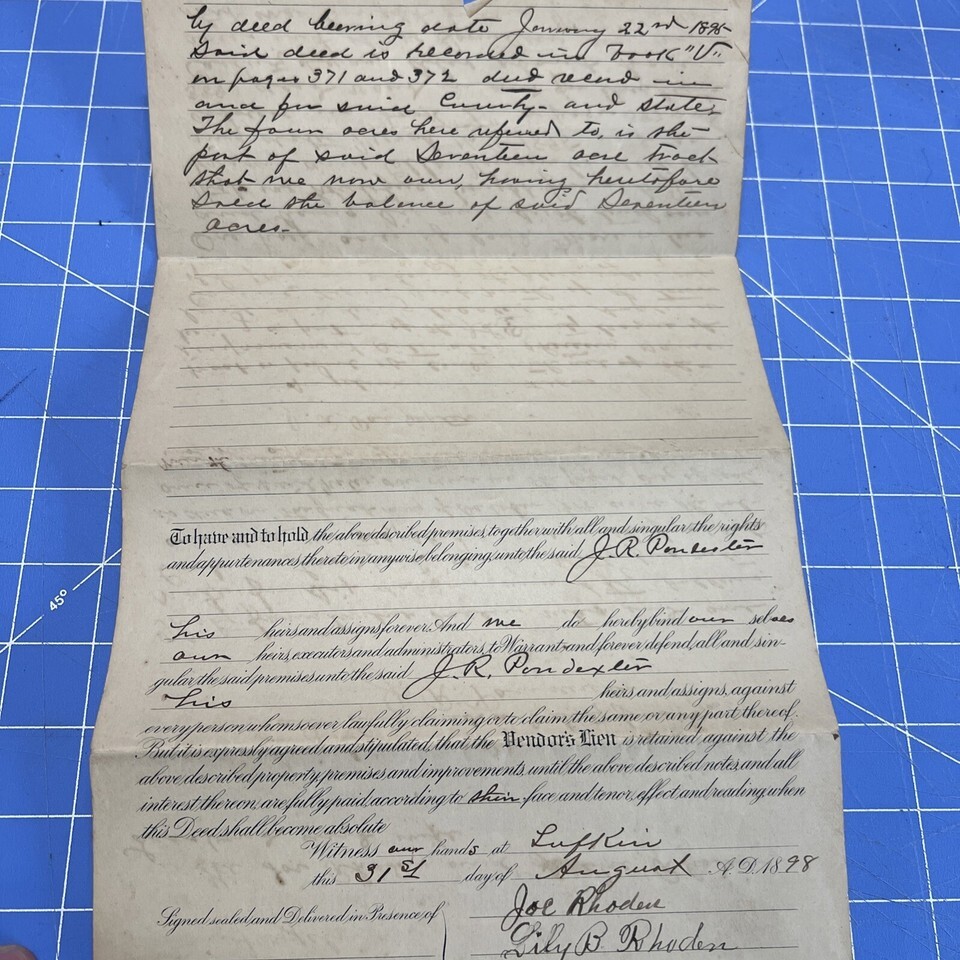 by deed bearing date January 22nd 1895
Said deed is recorded in Book "V"
on pages 371 and 372 deed record in
and for said County and state,
The four acres here refered to, is the
part of said Seventeen acre tract
that we now own, having heretofore
sold the balance of said Seventeen
acres.
To have and to hold, the above described premises, together with all and singular, the rights
and appurtenances thereto in anywise belonging, unto the said J. R. Pondexter
his heirs and assigns forever. And we do hereby bind our selves
our heirs, executors and administrators, to Warrant and forever defend, all and sin-
gular the said premises unto the said J. R. Pondexter
his heirs and assigns, against
every person whomsoever lawfully claiming or to claim the same or any part thereof.
But it is expressly agreed and stipulated, that the Vendor's Lien is retained against the
above described property, premises and improvements, until the above described notes, and all
interest thereon, are fully paid, according to their face and tenor, effect and reading, when
this Deed shall become absolute
Witness our hands at Lufkin
this 31st day of August A.D. 1898
Joe Rhoden
Signed sealed and Delivered in Presence of
Lily B. Rhoden
45°